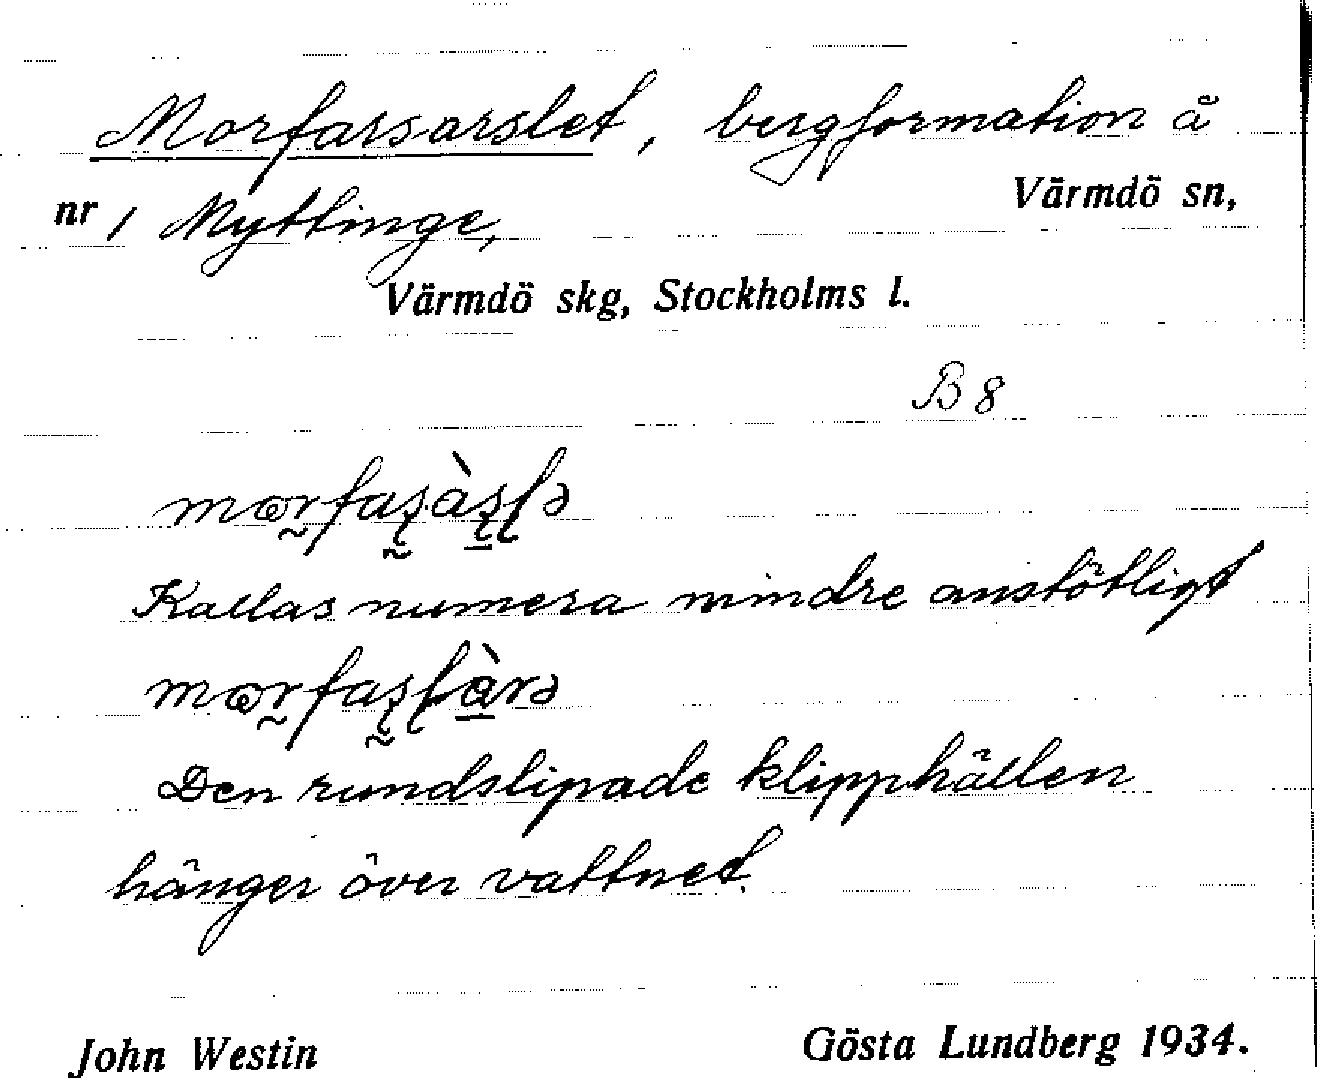 Morfarsarslet, bergformation å
Värmdö sn,
nr 1 Myttinge,
Värmdö skg, Stockholms l.
B 8
Kallas numera mindre anstötligt
Den rundslipade klipphällen
hänger över vattnet.
John Westin Gösta Lundberg 1934.